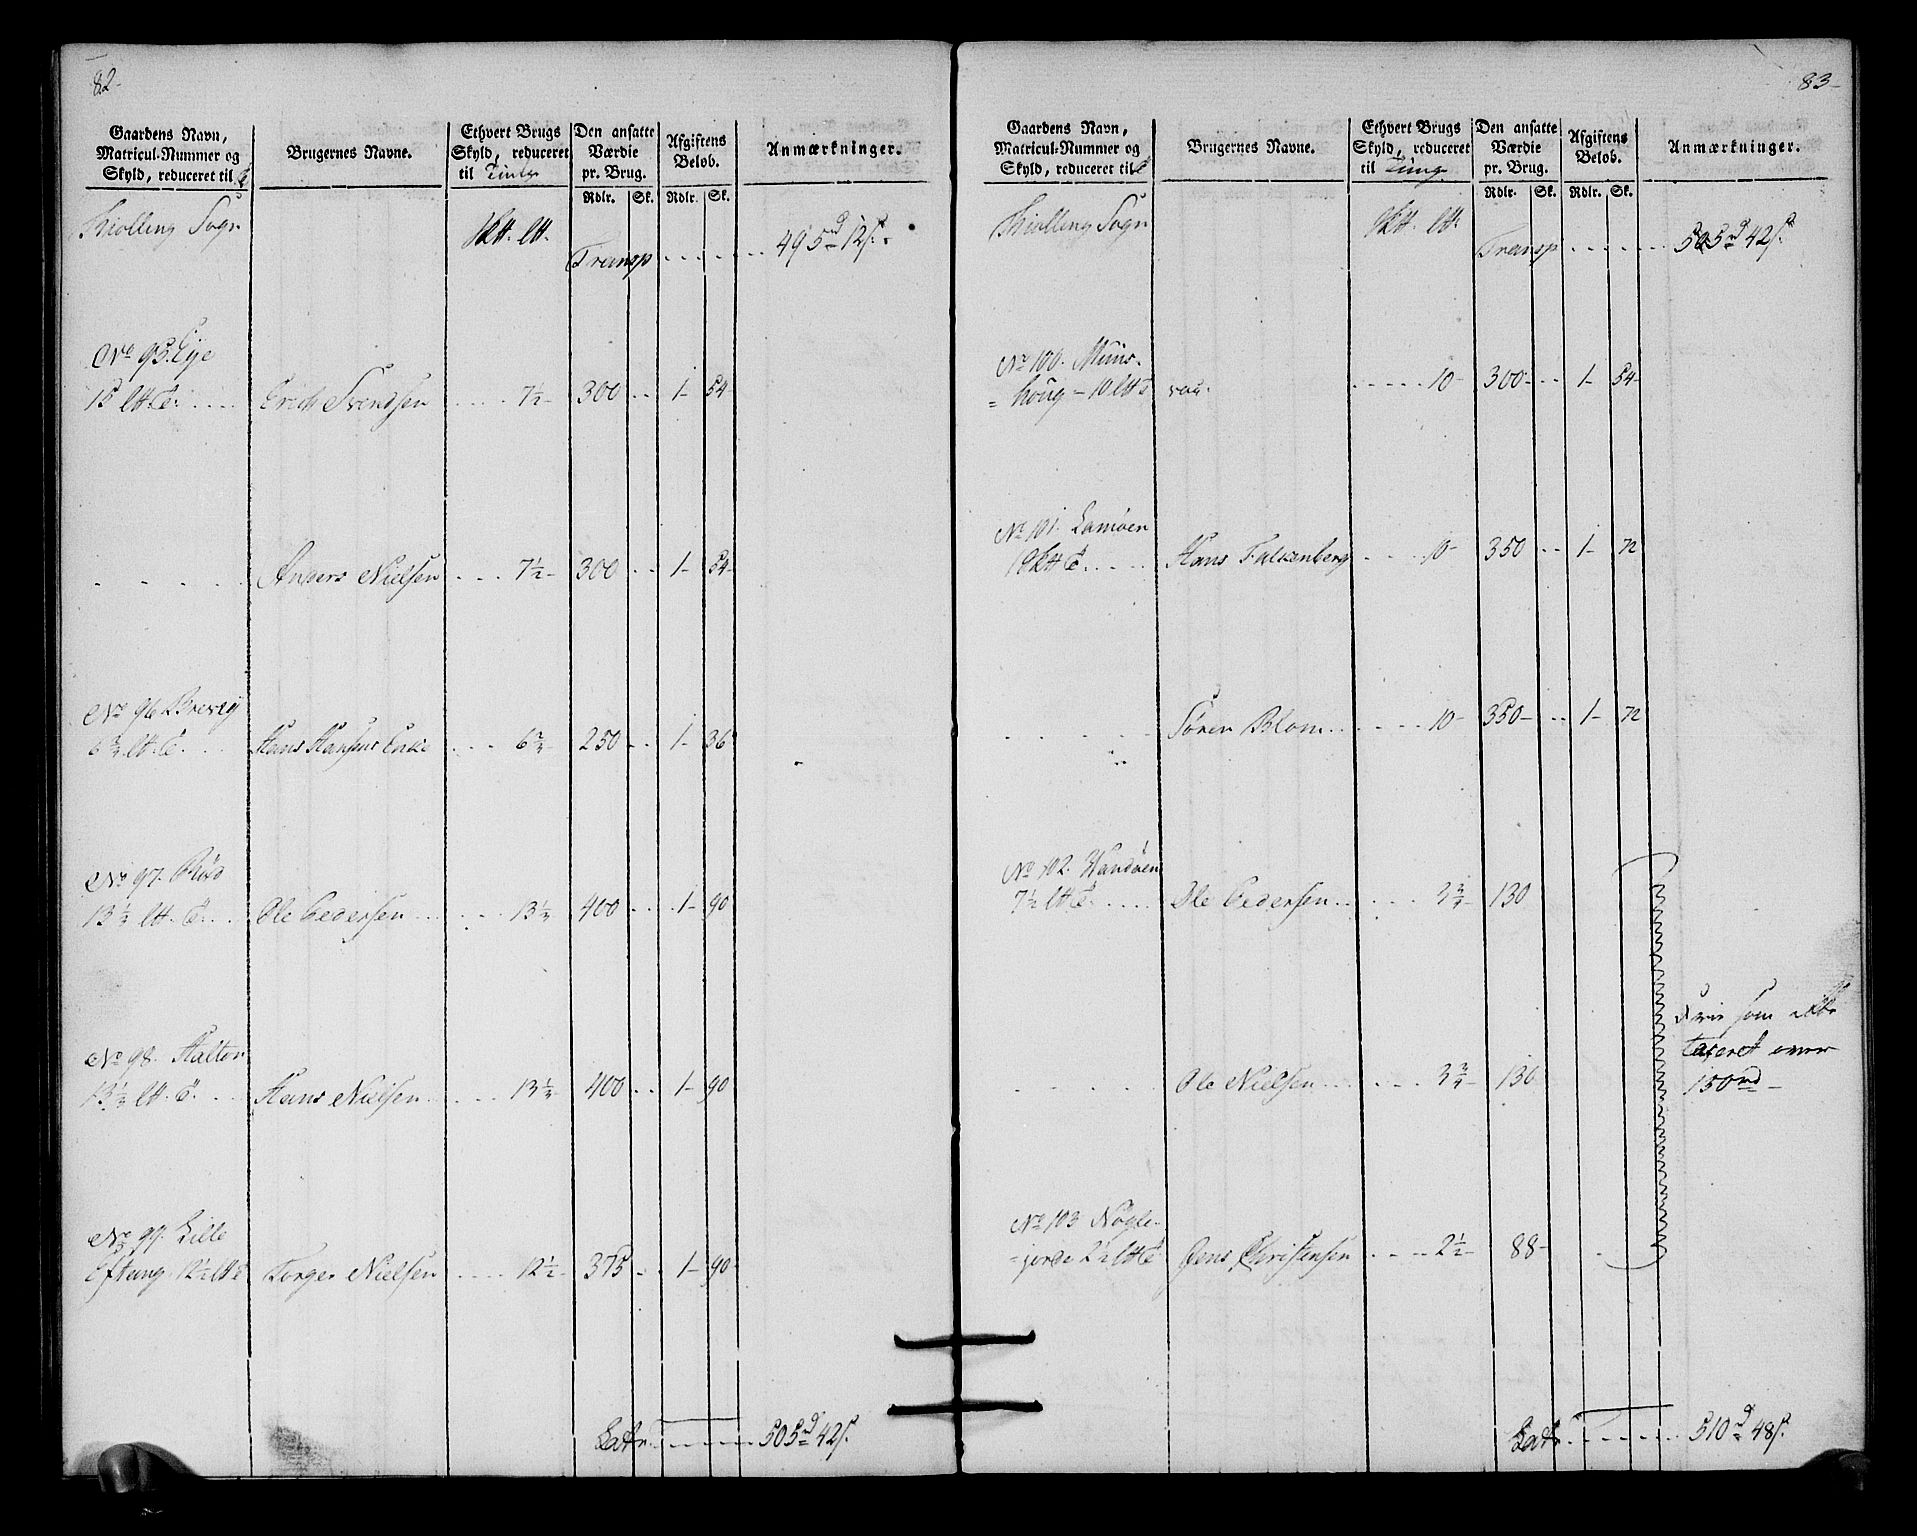 82-
Gaardens Navn,
Matricul-Nummer og
Skyld, reduceret til
Brugernes Navne.
Ethvert Brugs
Skyld, reduceret
til Tunge
Den ansatte
Værdie
pr. Brug.
Rdlr. Sk.
Afgiftens
Beløb.
Rdlr. Sk.
Anmærkninger.
Kiølling Sogn
Transp ...... 495 rd 12 s.
No 95. Eye
15 ltt T. .... Erich Svendsen .... 7½- 300 .. 1- 54-
Anders Nielsen ... 7½- 300 .. 1- 54-
No 96 Brevig
6¾ ltt T. .. Hans Hansens Enke ... 6¾- 250 .. 1- 36
No 97. Røed
13½ ltt. T. ... Ole Pedersen ... 13½- 400 ... 1- 90
No 98. Haltor
13½ ltt. T. .. Hans Nielsen .... 13½- 400 .. 1- 90
No 99. Lille
Eftang 12½ ltt T Torger Nielsen .... 12½- 375 .. 1- 90
Latr. ...... 505 rd 42 s.
83-
Gaardens Navn,
Matricul-Nummer og
Skyld, reduceret til
Brugernes Navne.
Ethvert Brugs
Skyld, reduceret
til Tunge
Den ansatte
Værdie
pr. Brug.
Rdlr. Sk.
Afgiftens
Beløb.
Rdlr. Sk.
Anmærkninger.
Kiølling Sogn
Transp ...... 505 rd 42 s.
No 100. Muus-
= houg - 10 ltt T ..... 10- 300- .. 1- 54-
No 101. Lamøen
1 Sktt T. .... Hans Falkenberg .... 10- 350 .. 1- 72
Søren Blom ..... 10- 350- .. 1- 72
No 102. Handøen
7½ ltt T. .... Ole Pedersen ..... 3¾- 130
Ole Nielsen ..... 3¾- 130
Frie som ikke
taxeret over
150 rd -
No 103 Nøgle-
- jorde 2½ ltt T Jens Christensen .... 2½- 88-
Latr. ...... 510 rd 48 s.